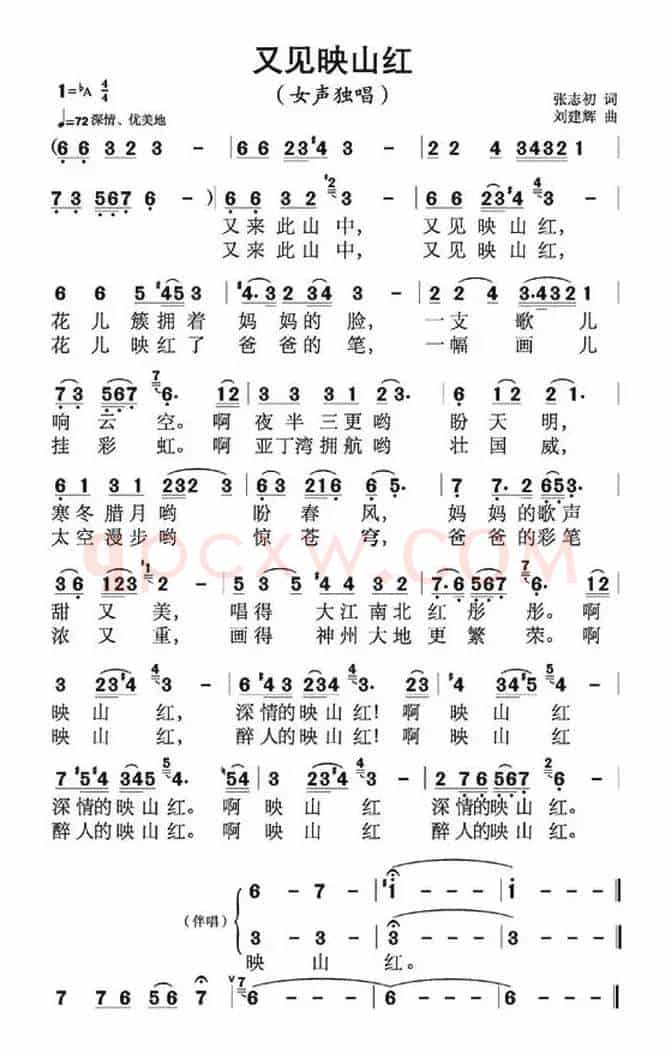 又见映山红
(女声独唱)
1=♭A 4/4
♩=72 深情、优美地
张志初 词
刘建辉 曲
(6 6 3 2 3 - | 6 6 23 #4 3 - | 2 2 4 34321 |
7 3 567 6 -) | 6 6 3 2 3 - | 6 6 23 #4 3 - |
又来此山中, 又见映山红,
又来此山中, 又见映山红,
6 6 5 #453 | #4. 3 2 34 3 - | 2 2 3.432 1 |
花儿簇拥着 妈妈的脸, 一支歌儿
花儿映红了 爸爸的笔, 一幅画儿
7 3 567 6. 12 | 3 3 3 1 23. | 6 12 2 - |
响云空。啊 夜半三更哟 盼天明,
挂彩虹。啊 亚丁湾拥航哟 壮国威,
6 1 3 1 232 3 | 6 3 216 6 5. | 7 7. 2 653 |
寒冬腊月哟 盼春风, 妈妈的歌声
太空漫步哟 惊苍穹, 爸爸的彩笔
qpcxw.COM
36 123 2 - | 5 3 5 3 5 | 7.6 567 6. 12 |
甜又美, 唱得 大江南北红彤彤。啊
浓又重, 画得 神州大地更繁荣。啊
3 23#4 3 - | 6 #43 234 3. 23 | #4 34#5 4 - |
映山红, 深情的映山红!啊 映山红
映山红, 醉人的映山红!啊 映山红
7 #5#4 345 4. ♮54 | 3 23#4 3 - | 2 76 567 6 - |
深情的映山红。啊 映山红 深情的映山红。
醉人的映山红。啊 映山红 醉人的映山红。
6 - 7 - | #1 - - - | 1 - - - ‖
(伴唱)
3 - 3 - | 3 - - - | 3 - - - ‖
映山红。
7 7 6 56 7 | 6 - - - | 6 - - - ‖